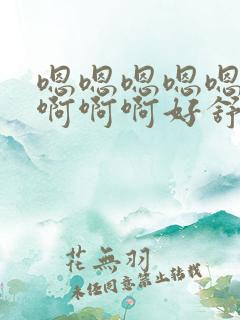 嗯嗯嗯嗯嗯
啊啊啊好舒
花無羽
未经同意禁止转载